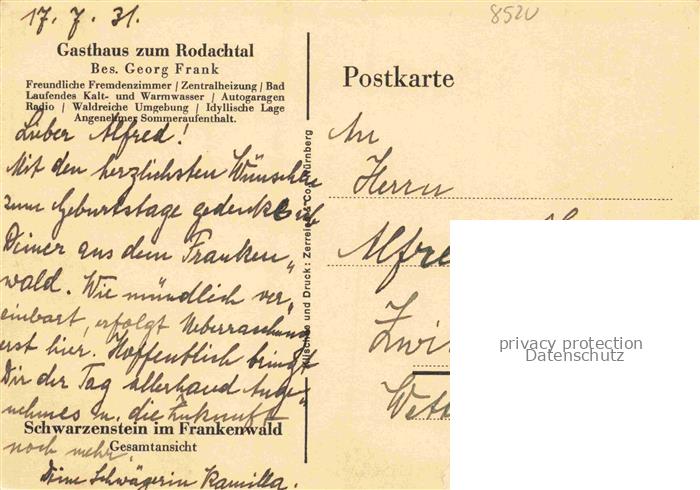 17. 7. 31.
8520
Gasthaus zum Rodachtal
Bes. Georg Frank
Freundliche Fremdenzimmer / Zentralheizung / Bad
Laufendes Kalt- und Warmwasser / Autogaragen
Radio / Waldreiche Umgebung / Idyllische Lage
Angenehmer Sommeraufenthalt.
Lieber Alfred!
Mit den herzlichsten Wünschen
zum Geburtstage gedenke ich
Deiner aus dem Franken„
wald. Wie mündlich ver„
einbart, erfolgt Ueberraschung
erst hier. Hoffentlich bringt
Dir der Tag allerhand Ange„
nehmes u. die Zukunft
Schwarzenstein im Frankenwald
noch mehr.
Gesamtansicht
Deine Schwägerin Kamilla.
Klischee und Druck: Zerreiss & Co., Nürnberg
Postkarte
An
Herrn
Alfre
Zwi
privacy protection
Datenschutz